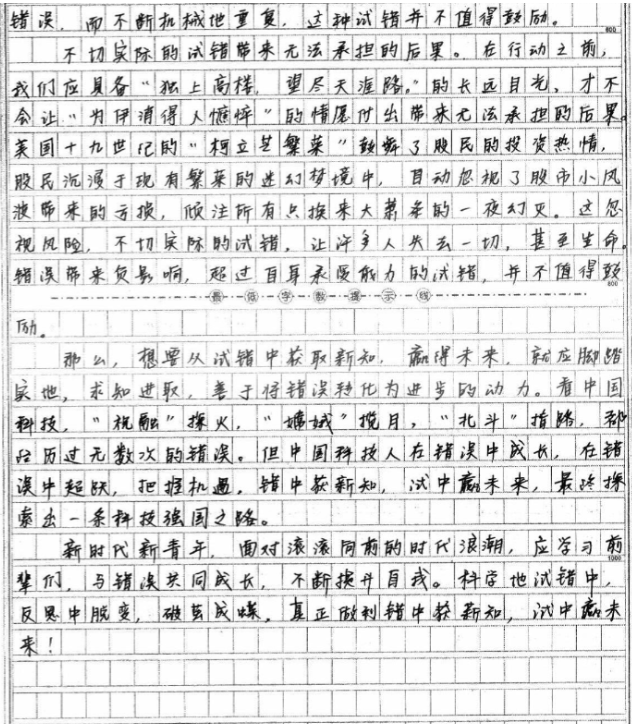 错误，而不断机械地重复，这种试错并不值得鼓励。
600
不切实际的试错带来无法承担的后果。在行动之前，
我们应具备“独上高楼，望尽天涯路。”的长远目光，才不
会让“为伊消得人憔悴”的情愿付出带来无法承担的后果。
美国十九世纪的“柯立芝繁荣”鼓舞了股民的投资热情，
股民沉浸于现有繁荣的迷幻梦境中，自动忽视了股市小风
波带来的亏损，倾注所有只换来大萧条的一夜幻灭。这忽
视风险，不切实际的试错，让许多人失去一切，甚至生命。
错误带来负影响，超过自身承受能力的试错，并不值得鼓
800
最低字数提示线
励。
那么，想要从试错中获取新知，赢得未来，就应脚踏
实地，求知进取，善于将错误转化为进步的动力。看中国
科技，“祝融”探火，“嫦娥”揽月，“北斗”指路，都
经历过无数次的错误。但中国科技人在错误中成长，在错
误中超跃，把握机遇，错中获新知，试中赢未来，最终探
索出一条科技强国之路。
新时代新青年，面对滚滚向前的时代浪潮，应学习前
1000
辈们，与错误共同成长，不断提升自我。科学地试错中，
反思中脱变，破茧成蝶，真正做到错中获新知，试中赢未
来！